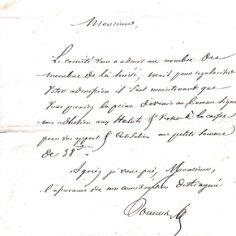 Monsieur,
Le comité vous a admis au nombre des
membres de la Société, mais pour régulariser
votre admission il faut maintenant que
vous preniez la peine de venir au Bureau signer
votre adhésion aux Statuts & verser à la caisse
pour vos & Cotisation une petite somme
de 38
Agréez, je vous prie, Monsieur,
l'assurance de ma considération distinguée